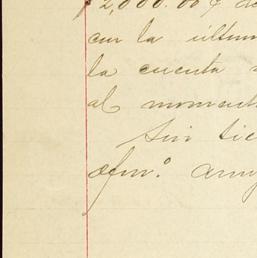 $2,000.00¢ de
con la últim
la cuenta
al moment
Sin
afmo. ami